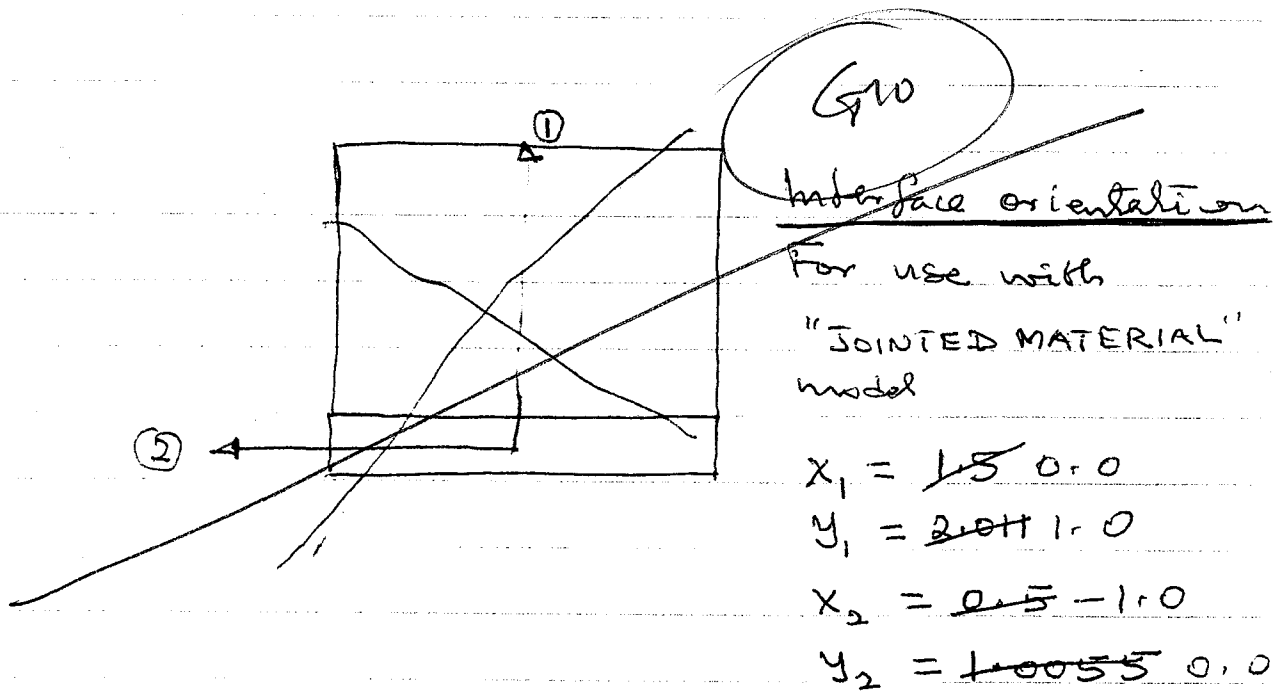 ①
G10
Interface orientation
For use with
"JOINTED MATERIAL"
model
②
x₁ = 1.5 0.0
y₁ = 2.011 1.0
x₂ = 0.5 -1.0
y₂ = 1.0055 0.0